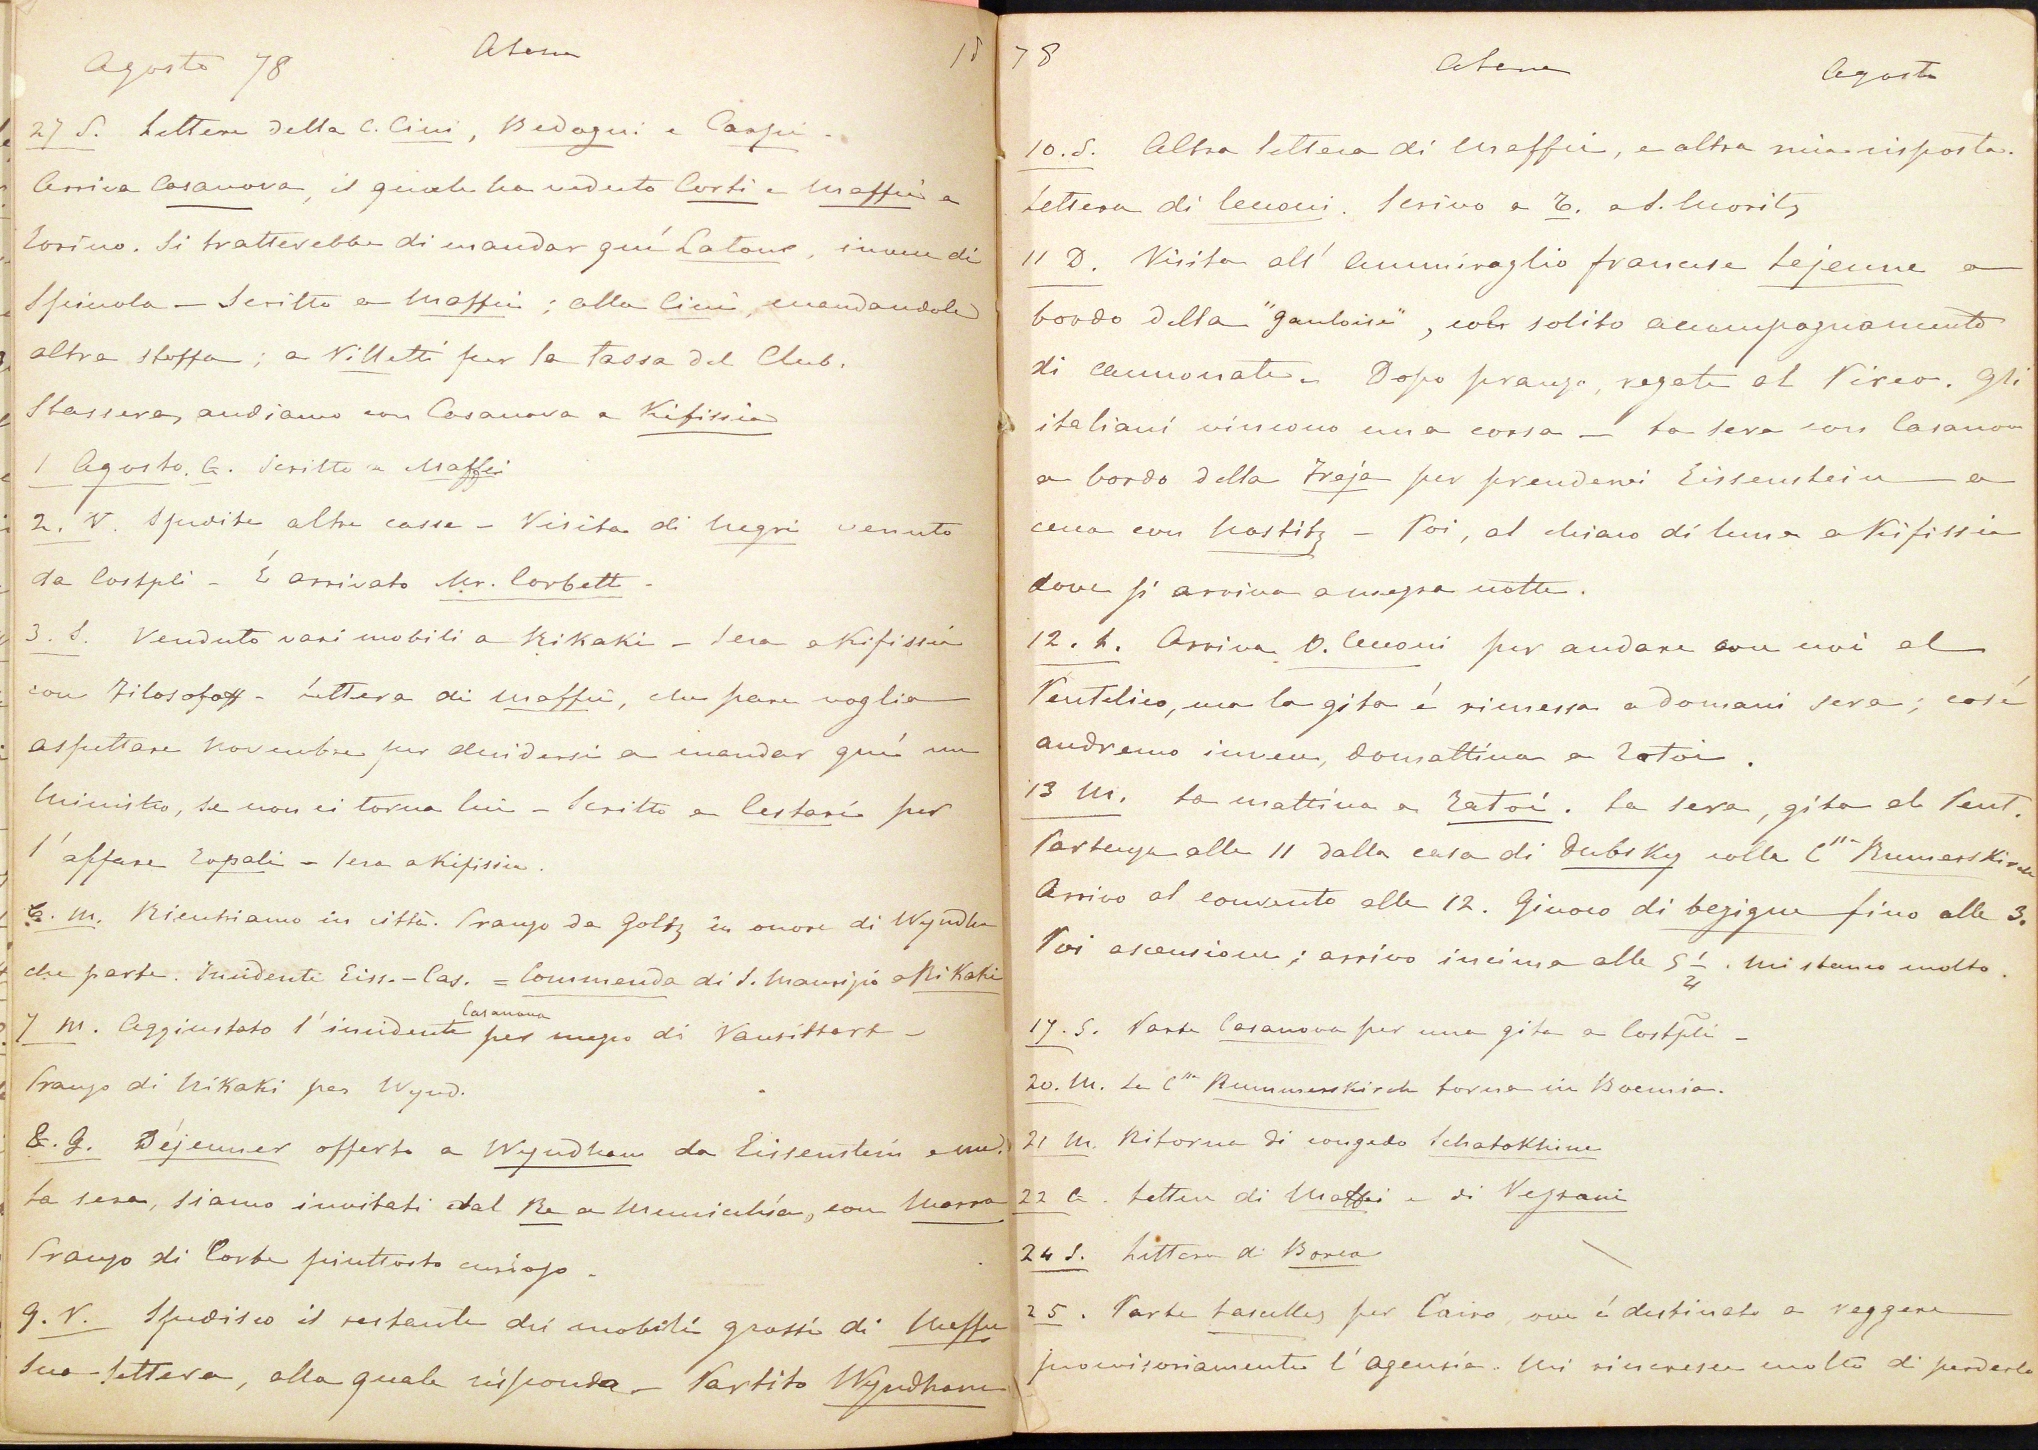 Agosto 78
Atene
18
27 S. Lettere della C. Cini, Bedogni e Carpi.
Arriva Casanova, il quale ha veduto Corti e Maffei a
Torino. Si tratterebbe di mandar quí Latour, invece di
Spinola – Scritto a Maffei; alla Cini, mandandole
altra stoffa; a Villetti per la tassa del Club.
Stassera, andiamo con Casanova a Kifissia
1 Agosto. G. Scritto a Maffei
2. V. Spedite altre casse – Visita di Negri venuto
da Costpli – É arrivato Mr. Corbett –
3. S. Venduto vari mobili a Rikaki – Sera a Kifissia
con Filosofoff – Lettera di Maffei, che pare voglia
aspettare Novembre per decidersi a mandar quí un
Ministro, se non ci torna lui – Scritto a Cestari per
l'affare Topali – Sera a Kifissia.
6. M. Rientriamo in cittá. Pranzo da Goltz in onore di Wyndham
che parte. Incidente Eiss.–Cas. = Commenda di S. Maurizio a Rikaki
7 M. Aggiustato l'incidente Casanova per mezzo di Vansittart –
Pranzo di Rikaki per Wynd.
8. G. Déjeuner offerto a Wyndham da Eissenstein e me.
La sera, siamo invitati dal Re a Munichia, con Marra
Pranzo di Corte piuttosto curioso –
9. V. Spedisco il restante dei mobili grossi di Maffei
Sua lettera, alla quale rispondo – Partito Wyndham
78
Atene
Agosto
10. S. Altra lettera di Maffei, e altra mia risposta.
Lettera di Cenoni. Scrivo a T. a S. Moritz
11 D. Visita all' Ammiraglio francese Lejeune a
bordo della "Gauloise", col solito accompagnamento
di cannonate. Dopo pranzo, regate al Pireo. Gli
italiani vincono una corsa – La sera con Casanova
a bordo della Freja per prenderci Eissenstein – a
cena con Nostitz – Poi, al chiaro di luna a Kifissia
dove si arriva a mezza notte.
12. L. Arriva D. Cenoni per andare con noi al
Pentelico, ma la gita é rimessa a domani sera; cosí
andremo invece, domattina a Tatoi.
13 M. La mattina a Tatoi. La sera, gita al Pent.
Partenza alle 11 dalla casa di Dubsky colla C.ssa Rumerskirch
Arrivo al convento alle 12. Giuoco di bezigue fino alle 3.
Poi ascensione; arrivo in cima alle 5 1/4. Mi stanco molto.
17. S. Parte Casanova per una gita a Costpli –
20. M. La C.ssa Rummerskirch torna in Boemia.
21 M. Ritorna di congedo Schatokhine
22 G. Lettere di Maffei e di Vegzani
24 S. Lettera di Borea
25. Parte Lascelles per Cairo, ove é destinato a reggere
provvisoriamente l'agenzia. Mi rincresce molto di perderlo